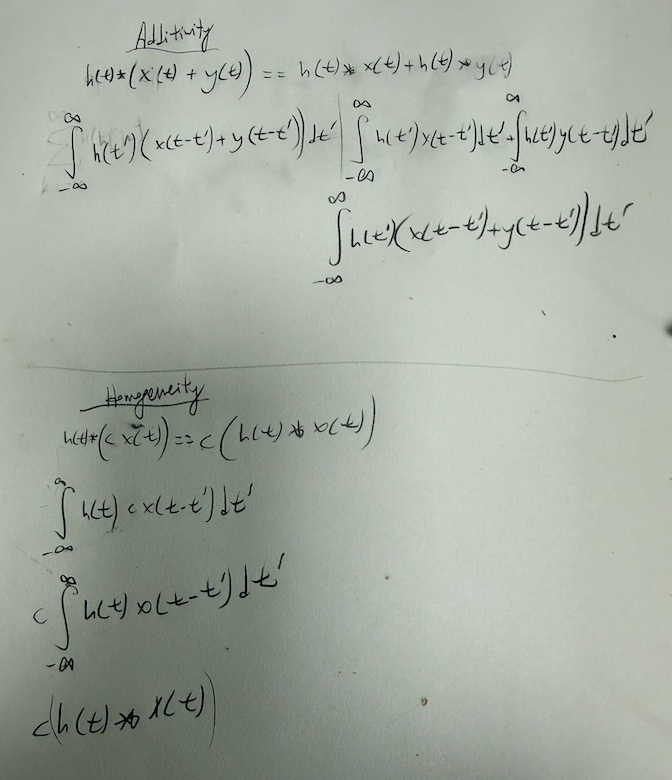 Additivity
h(t)*(x(t) + y(t)) == h(t) * x(t) + h(t) * y(t)
∫_{-∞}^{∞} h(t')(x(t-t')+y(t-t'))dt' | ∫_{-∞}^{∞} h(t')x(t-t')dt' + ∫_{-∞}^{∞} h(t')y(t-t')dt'
∫_{-∞}^{∞} h(t')(x(t-t')+y(t-t'))dt'
Homogeneity
h(t)*(c x(t)) == c(h(t) * x(t))
∫_{-∞}^{∞} h(t) c x(t-t')dt'
c ∫_{-∞}^{∞} h(t) x(t-t')dt'
c(h(t) * x(t))